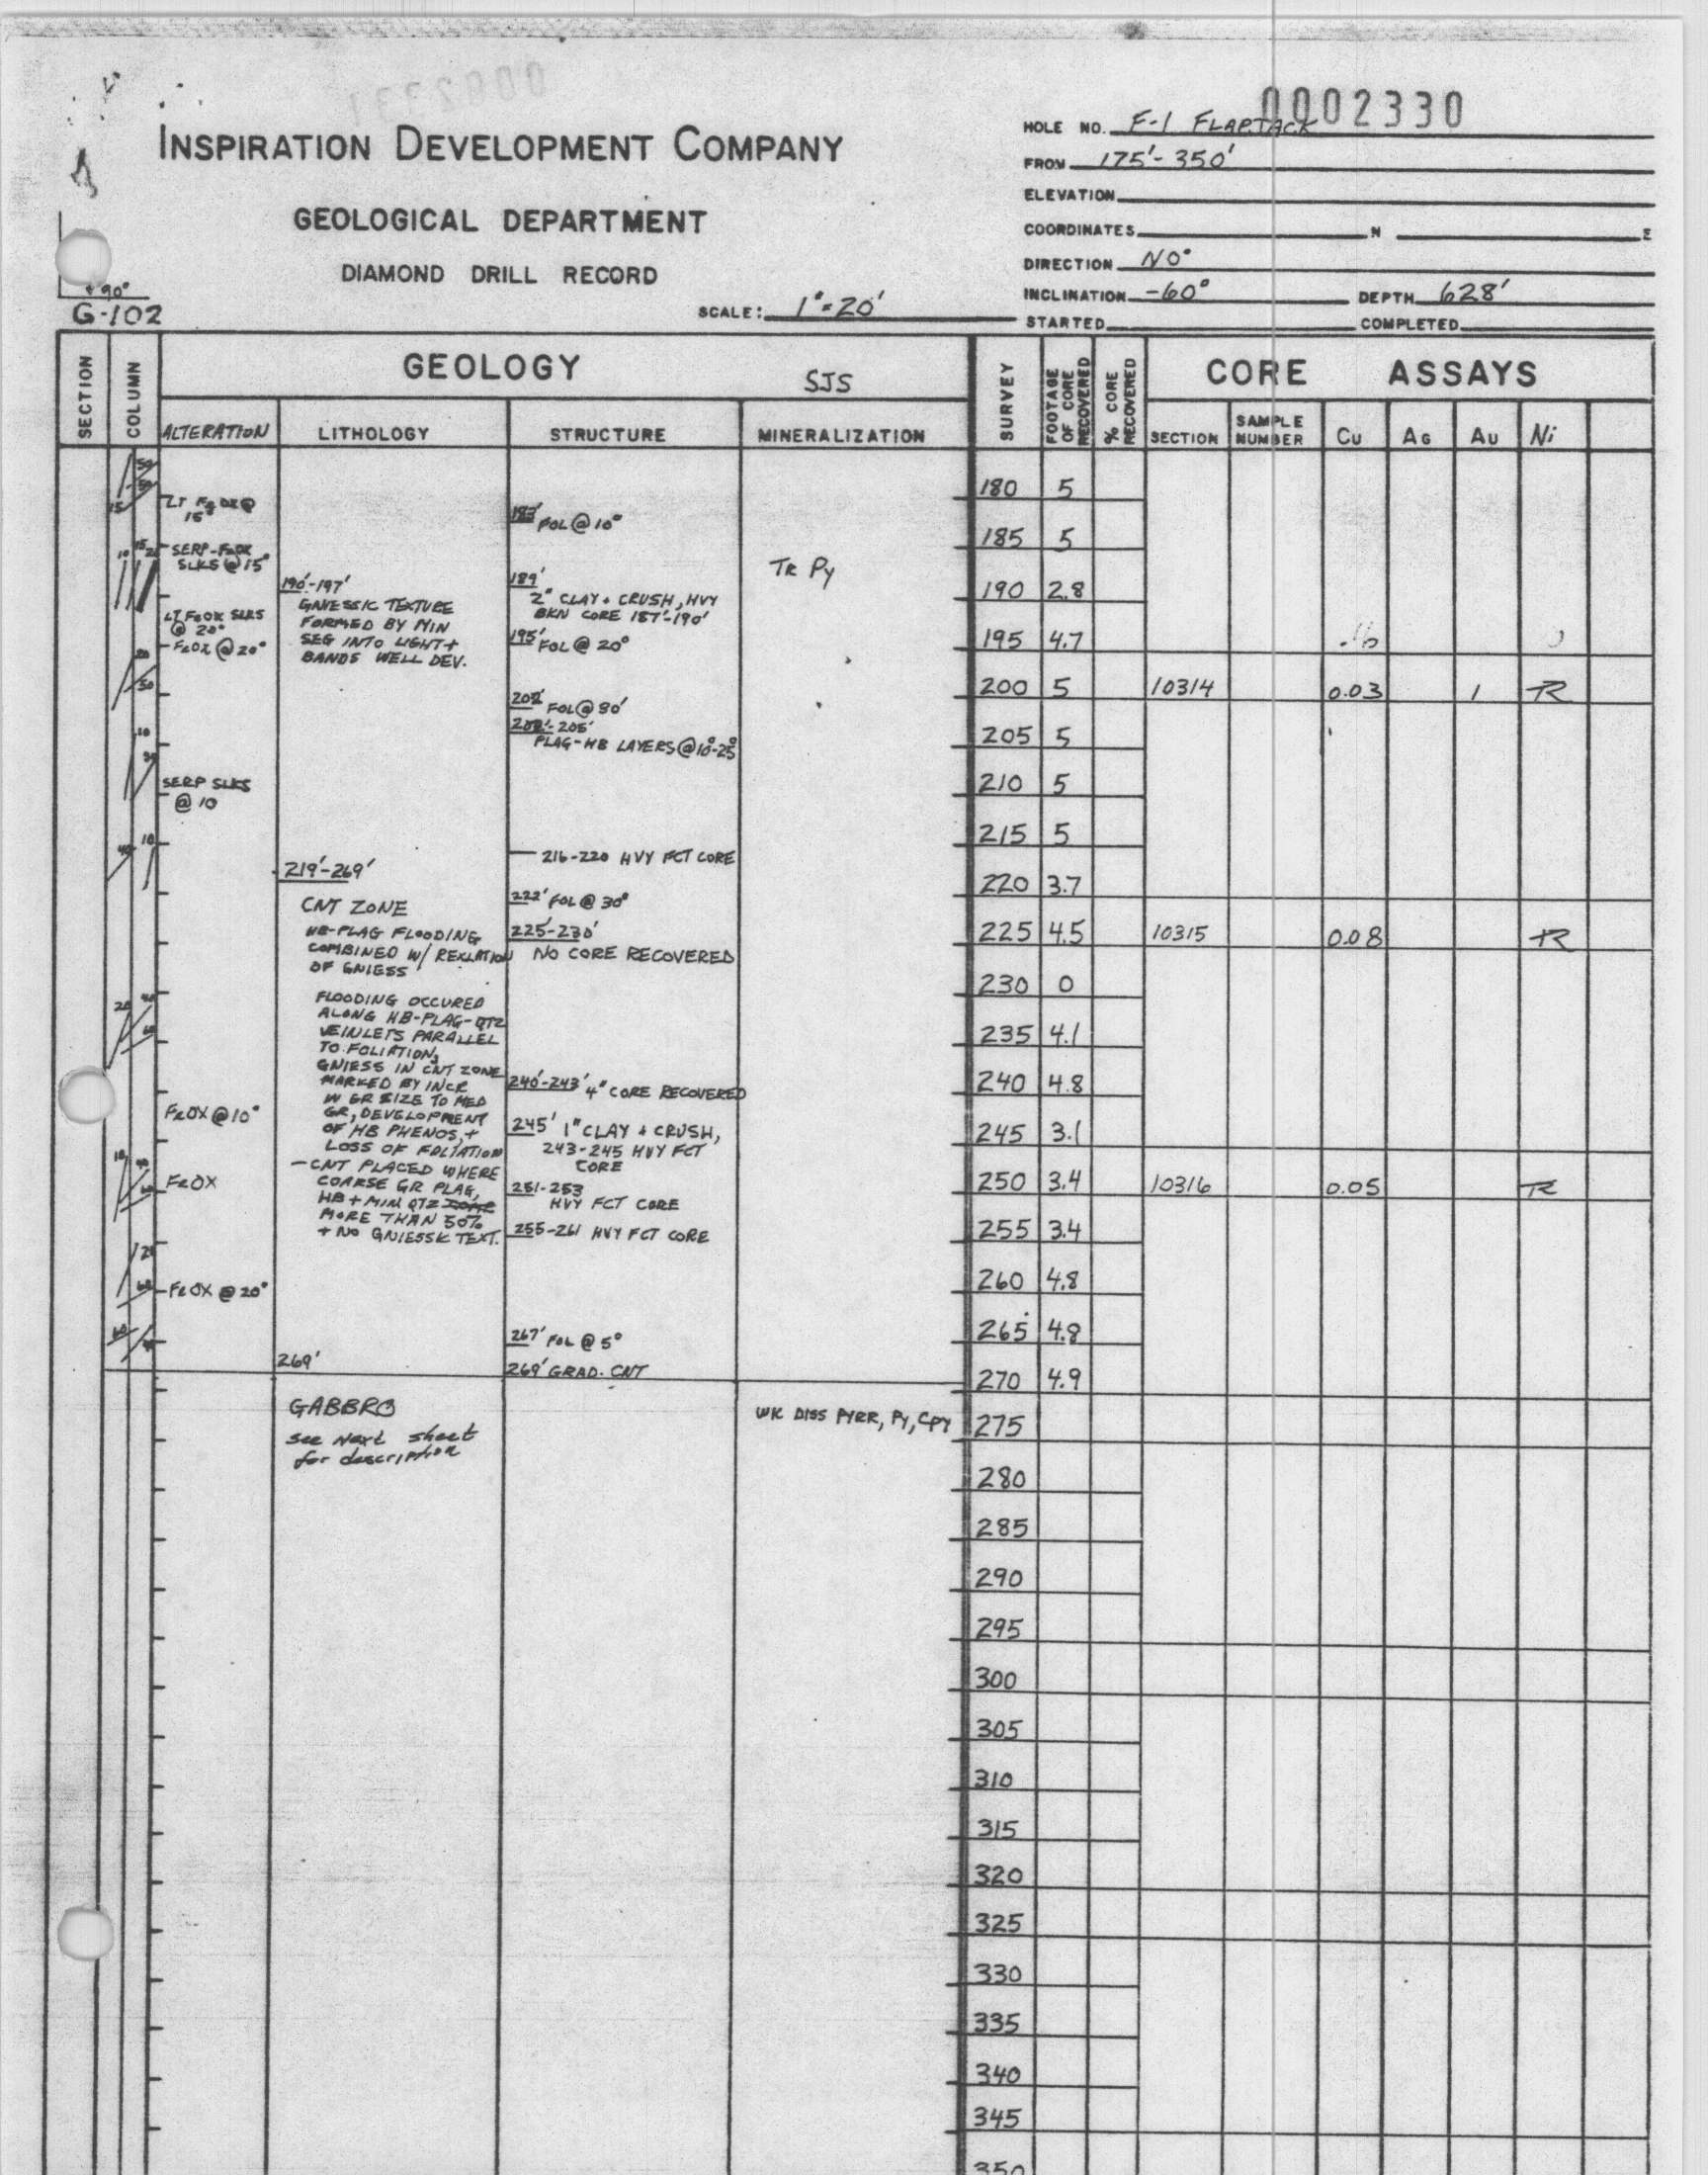 0002331
0002330
INSPIRATION DEVELOPMENT COMPANY
GEOLOGICAL DEPARTMENT
DIAMOND DRILL RECORD
SCALE: 1"=20'
+90°
G-102
HOLE NO. F-1 FLAPJACK
FROM 175'-350'
ELEVATION
COORDINATES N E
DIRECTION N0°
INCLINATION -60° DEPTH 628'
STARTED COMPLETED
SECTION
COLUMN
GEOLOGY SJS
ALTERATION LITHOLOGY STRUCTURE MINERALIZATION
SURVEY
FOOTAGE OF CORE RECOVERED
% CORE RECOVERED
CORE ASSAYS
SECTION SAMPLE NUMBER Cu AG AU Ni
LT FeOX @
15°
SERP-FeOX
SLKS @ 15°
LT FeOX SLKS
@ 20°
FeOX @ 20°
SERP SLKS
@ 10
FeOX @ 10°
FeOX
FeOX @ 20°
190'-197'
GNIESSIC TEXTURE
FORMED BY MIN
SEG INTO LIGHT+
BANDS WELL DEV.
219'-269'
CNT ZONE
HB-PLAG FLOODING
COMBINED W/
OF GNIESS
FLOODING OCCURED
ALONG HB-PLAG-QTZ
VEINLETS PARALLEL
TO FOLIATION,
GNIESS IN CNT ZONE
MARKED BY INCR
IN GR SIZE TO MED
GR, DEVELOPMENT
OF HB PHENOS, +
LOSS OF FOLIATION
-CNT PLACED WHERE
COARSE GR PLAG,
HB + MIN QTZ
MORE THAN 50%
+ NO GNIESSIC TEXT.
269'
GABBRO
see Next sheet
for description
183' FOL @ 10°
189'
2" CLAY + CRUSH, HVY
BKN CORE 187'-190'
195' FOL @ 20°
FOL @ 80'
PLAG-HB LAYERS @ 10°-25°
216-220 HVY FCT CORE
222' FOL @ 30°
225'-230'
NO CORE RECOVERED
240'-243' 4" CORE RECOVERED
245' 1" CLAY + CRUSH,
243-245 HVY FCT
CORE
251-253
HVY FCT CORE
255-261 HVY FCT CORE
267' FOL @ 5°
269' GRAD. CNT
TR Py
WK DISS PYRR, Py, CPY
180 5
185 5
190 2.8
195 4.7
200 5 10314 0.03 TR
205 5
210 5
215 5
220 3.7
225 4.5 10315 0.08 TR
230 0
235 4.1
240 4.8
245 3.1
250 3.4 10316 0.05 TR
255 3.4
260 4.8
265 4.8
270 4.9
275
280
285
290
295
300
305
310
315
320
325
330
335
340
345
350